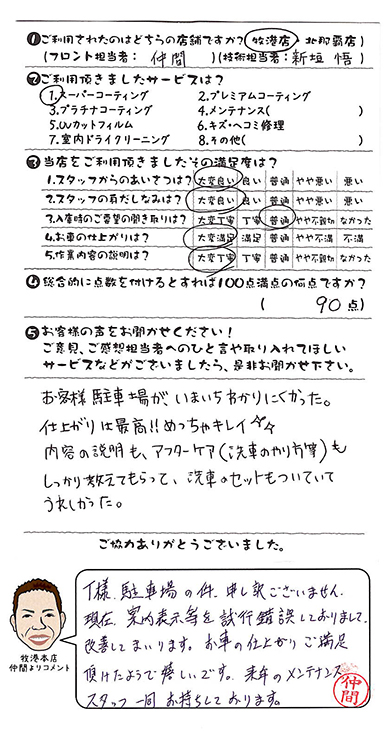 ❶ご利用されたのはどちらの店舗ですか?(牧港店・北那覇店)
(フロント担当者: 仲間 )(技術担当者:新垣 悟 )
❷ご利用頂きましたサービスは?
1.スーパーコーティング 2.プレミアムコーティング
3.プラチナコーティング 4.メンテナンス( )
5.UVカットフィルム 6.キズ・ヘコミ修理
7.室内ドライクリーニング 8.その他( )
❸当店をご利用頂きましたその満足度は?
1.スタッフからのあいさつは? 大変良い 良い 普通 やや悪い 悪い
2.スタッフの身だしなみは? 大変良い 良い 普通 やや悪い 悪い
3.入庫時のご要望の聞き取りは? 大変丁寧 丁寧 普通 やや不親切 なかった
4.お車の仕上がりは? 大変満足 満足 普通 やや不満 不満
5.作業内容の説明は? 大変丁寧 丁寧 普通 やや不親切 なかった
❹総合的に点数を付けるとすれば100点満点の何点ですか?
( 90 点)
❺お客様の声をお聞かせください!
ご意見、ご感想担当者へのひと言や取り入れてほしい
サービスなどがございましたら、是非お聞かせ下さい。
お客様駐車場が いまいちわかりにくかった。
仕上がりは最高!!めっちゃキレイ☆☆
内容の説明も、アフターケア(洗車のやり方等)も
しっかり教えてもらって、洗車のセットもついていて
うれしかった。
ご協力ありがとうございました。
T様、駐車場の件、申し訳ございません。
現在、案内表示等を試行錯誤しておりまして、
改善してまいります。お車の仕上がり ご満足
頂けたようで嬉しいです。来年のメンテナンス
スタッフ一同 お待ちしております。
仲間
牧港本店
仲間よりコメント